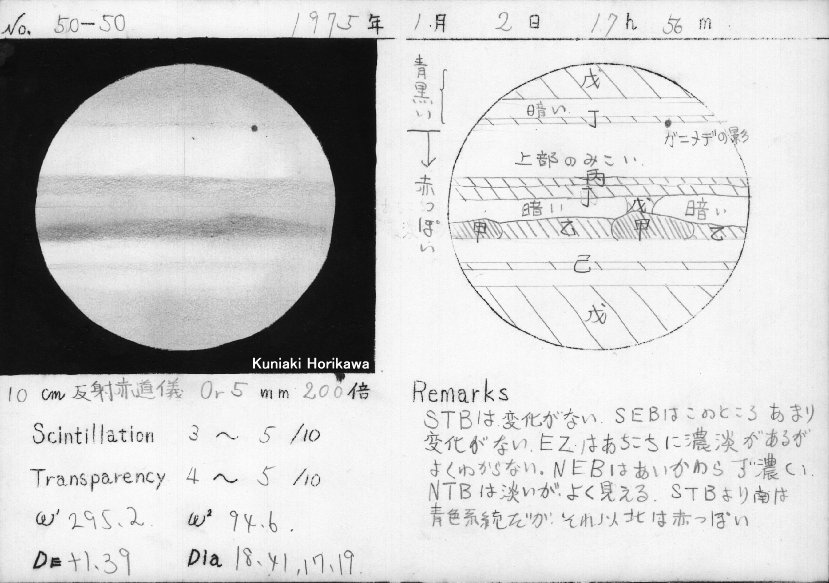 No. 50-50 1975年 1月 2日 17h 56m
青黒い
赤っぽい
戊
暗い 丁
ガニメデの影
上部のみこい
丙
丁
暗い 戊 暗い
甲 乙 甲 乙
己
戊
Kuniaki Horikawa
10 cm 反射赤道儀 Or 5 mm 200倍
Scintillation 3 〜 5 /10
Transparency 4 〜 5 /10
ω¹ 295.2 ω² 94.6
DE +1.39 Dia 18.41, 17.19
Remarks
STBは変化がない. SEBはこのところ あまり
変化がない. EZはあちこちに濃淡があるが
よくわからない。NEBはあいかわらず濃い.
NTBは淡いが よく見える. STBより南は
青色系統だが. それ以北は赤っぽい